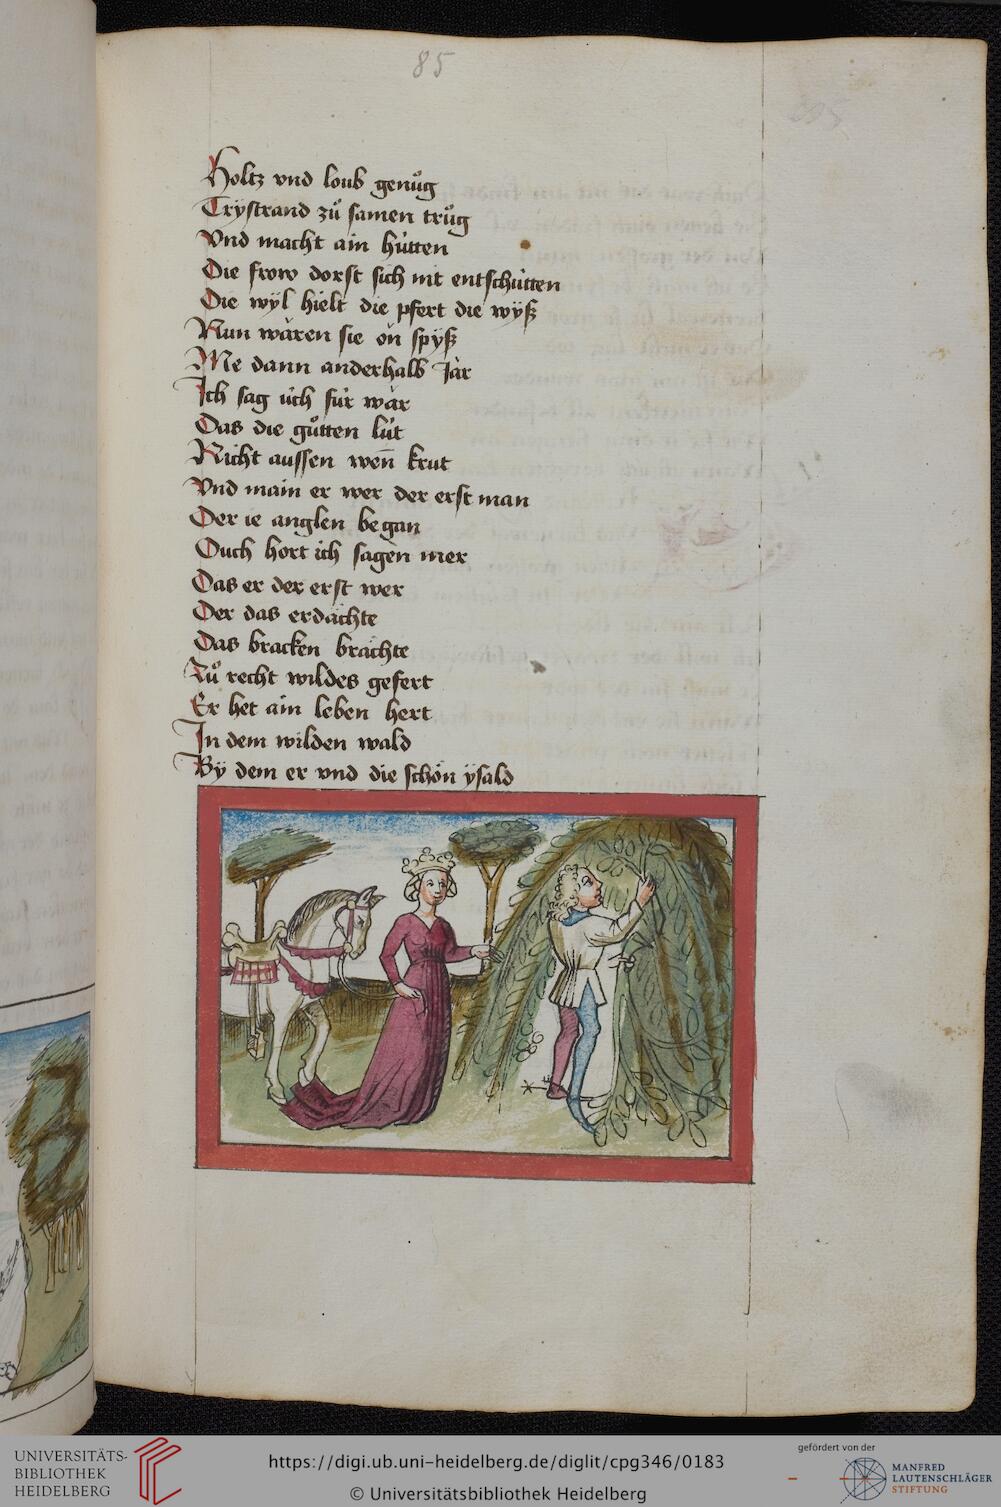 85
Holtz vnd loub genůg
Trystrand zů samen trůg
Vnd macht ain hütten
Die frow dorst sich nit entschütten
Die wyl hielt die pfert die wyß
Nun wären sie ön spyß
Me dann anderhalb Jär
Ich sag üch für wär
Das die gůtten lüt
Nicht aussen wen̄ krut
Vnd main er wer der erst man
Der ie anglen began
Ouch hort ich sagen mer
Das er der erst wer
Der das erdächte
Das bracken brächte
Zů recht wildes gefert
Er het ain leben hert
In dem wilden wald
By dem er vnd die schön ysald
UNIVERSITÄTS-
BIBLIOTHEK
HEIDELBERG
https://digi.ub.uni-heidelberg.de/diglit/cpg346/0183
© Universitätsbibliothek Heidelberg
gefördert von der
MANFRED
LAUTENSCHLÄGER
STIFTUNG